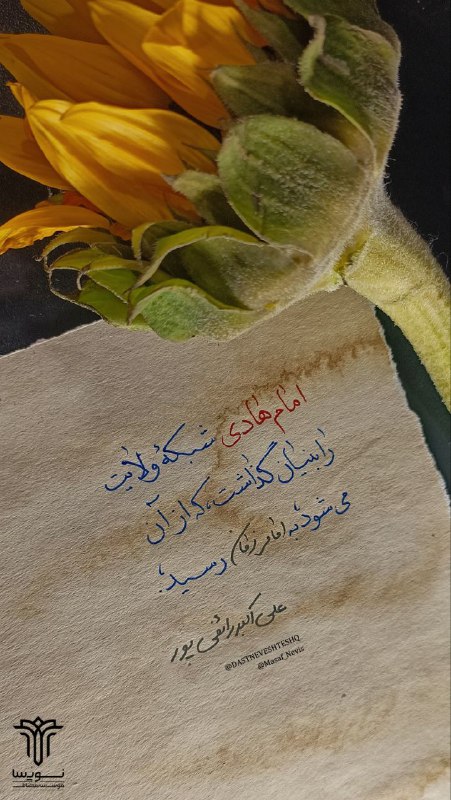 امام هادی شبکهٔ ولایت
را بنیان گذاشت، که از آن
می‌شود؛ به امام زمان رسید؛
علی اکبر رائفی پور
@DASTNEVESHTESHQ
@Masaf_Nevis
نویسا